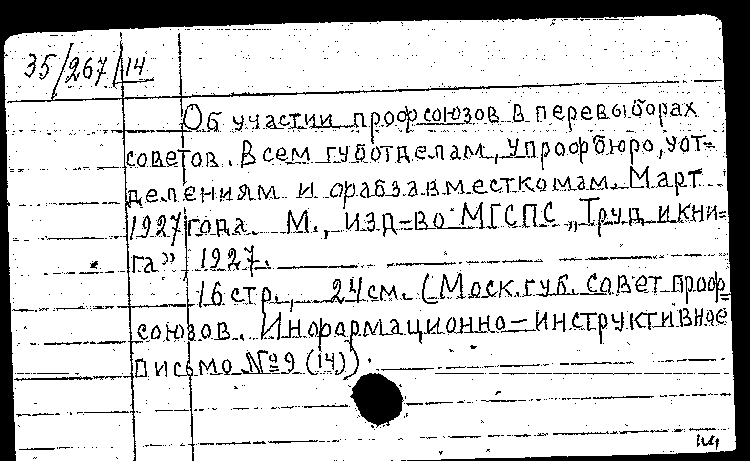 35/267/14
Об участии профсоюзов в перевыборах
советов. Всем губотделам, упрофбюро, уот=
делениям и фрабзавместкомам. Март
1927 года. М., изд-во МГСПС „Труд и кни=
га” 1927.
16 стр., 24 см. (Моск. губ. совет проф=
союзов. Информационно-инструктивное
письмо № 9 (14)).